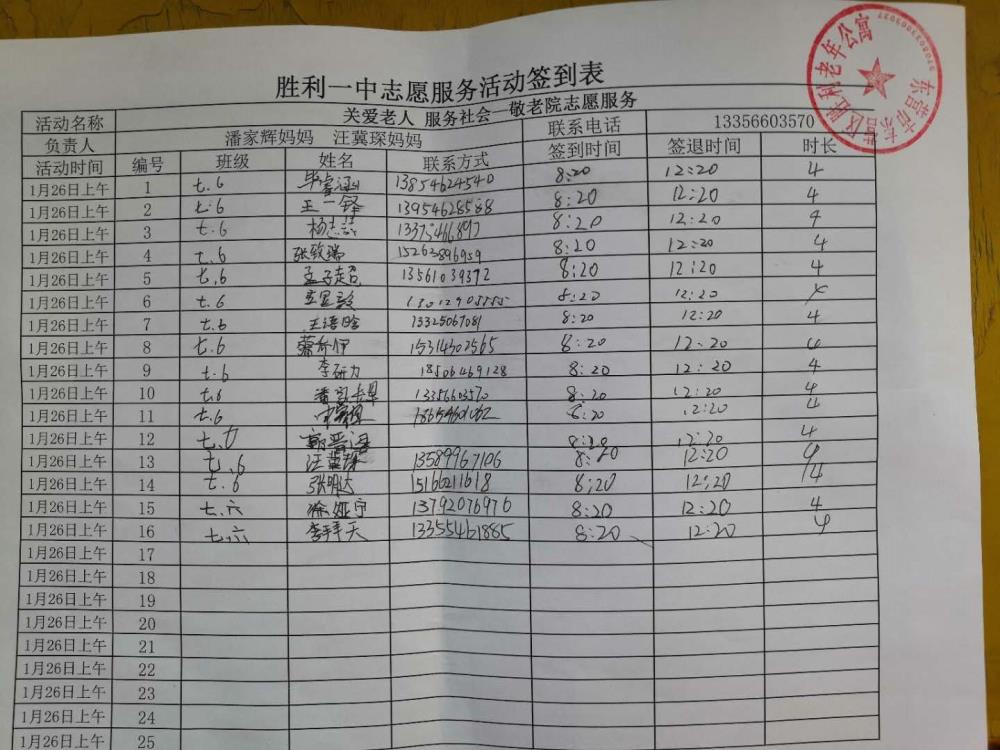 胜利一中志愿服务活动签到表
活动名称 关爱老人 服务社会一敬老院志愿服务
负责人 潘家辉妈妈 汪冀琛妈妈 联系电话 13356603570
活动时间 编号 班级 姓名 联系方式 签到时间 签退时间 时长
1月26日上午 1 七.6 毕睿涵 13854624540 8:20 12:20 4
1月26日上午 2 七.6 王一铎 13954628588 8:20 12:20 4
1月26日上午 3 七.6 杨志 8:20 12:20 4
1月26日上午 4 七.6 张致瑞 15263896959 8:20 12:20 4
1月26日上午 5 七.6 孟子超 13561039392 8:20 12:20 4
1月26日上午 6 七.6 8:20 12:20
1月26日上午 7 七.6 王语晗 13325067081 8:20 12:20 4
1月26日上午 8 七.6 15314302565 8:20 12:20 4
1月26日上午 9 七.6 李研力 18506469128 8:20 12:20 4
1月26日上午 10 七.6 13356603570 8:20 12:20 4
1月26日上午 11 七.6 8:20 12:20 4
1月26日上午 12 郭晋 12:20 4
1月26日上午 13 七.6 汪冀琛 13589967106 8:20 12:20 4
1月26日上午 14 七.6 张明达 8:20 12:20 4
1月26日上午 15 七.六 徐娅宁 13792076970 8:20 12:20 4
1月26日上午 16 七.六 李天 13355461885 8:20 12:20 4
1月26日上午 17
1月26日上午 18
1月26日上午 19
1月26日上午 20
1月26日上午 21
1月26日上午 22
1月26日上午 23
1月26日上午 24
1月26日上午 25
东营市东营区胜利老年公寓